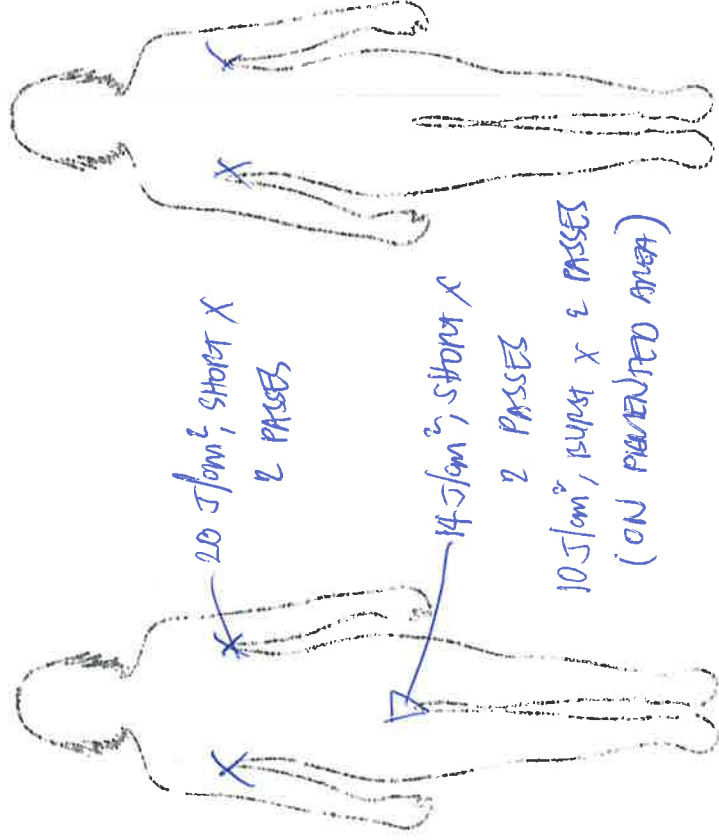 20 J/cm², SHORT X
2 PASSES
14 J/cm², SHORT X
2 PASSES
10 J/cm², BURST X 2 PASSES
(ON PIGMENTED AREA)